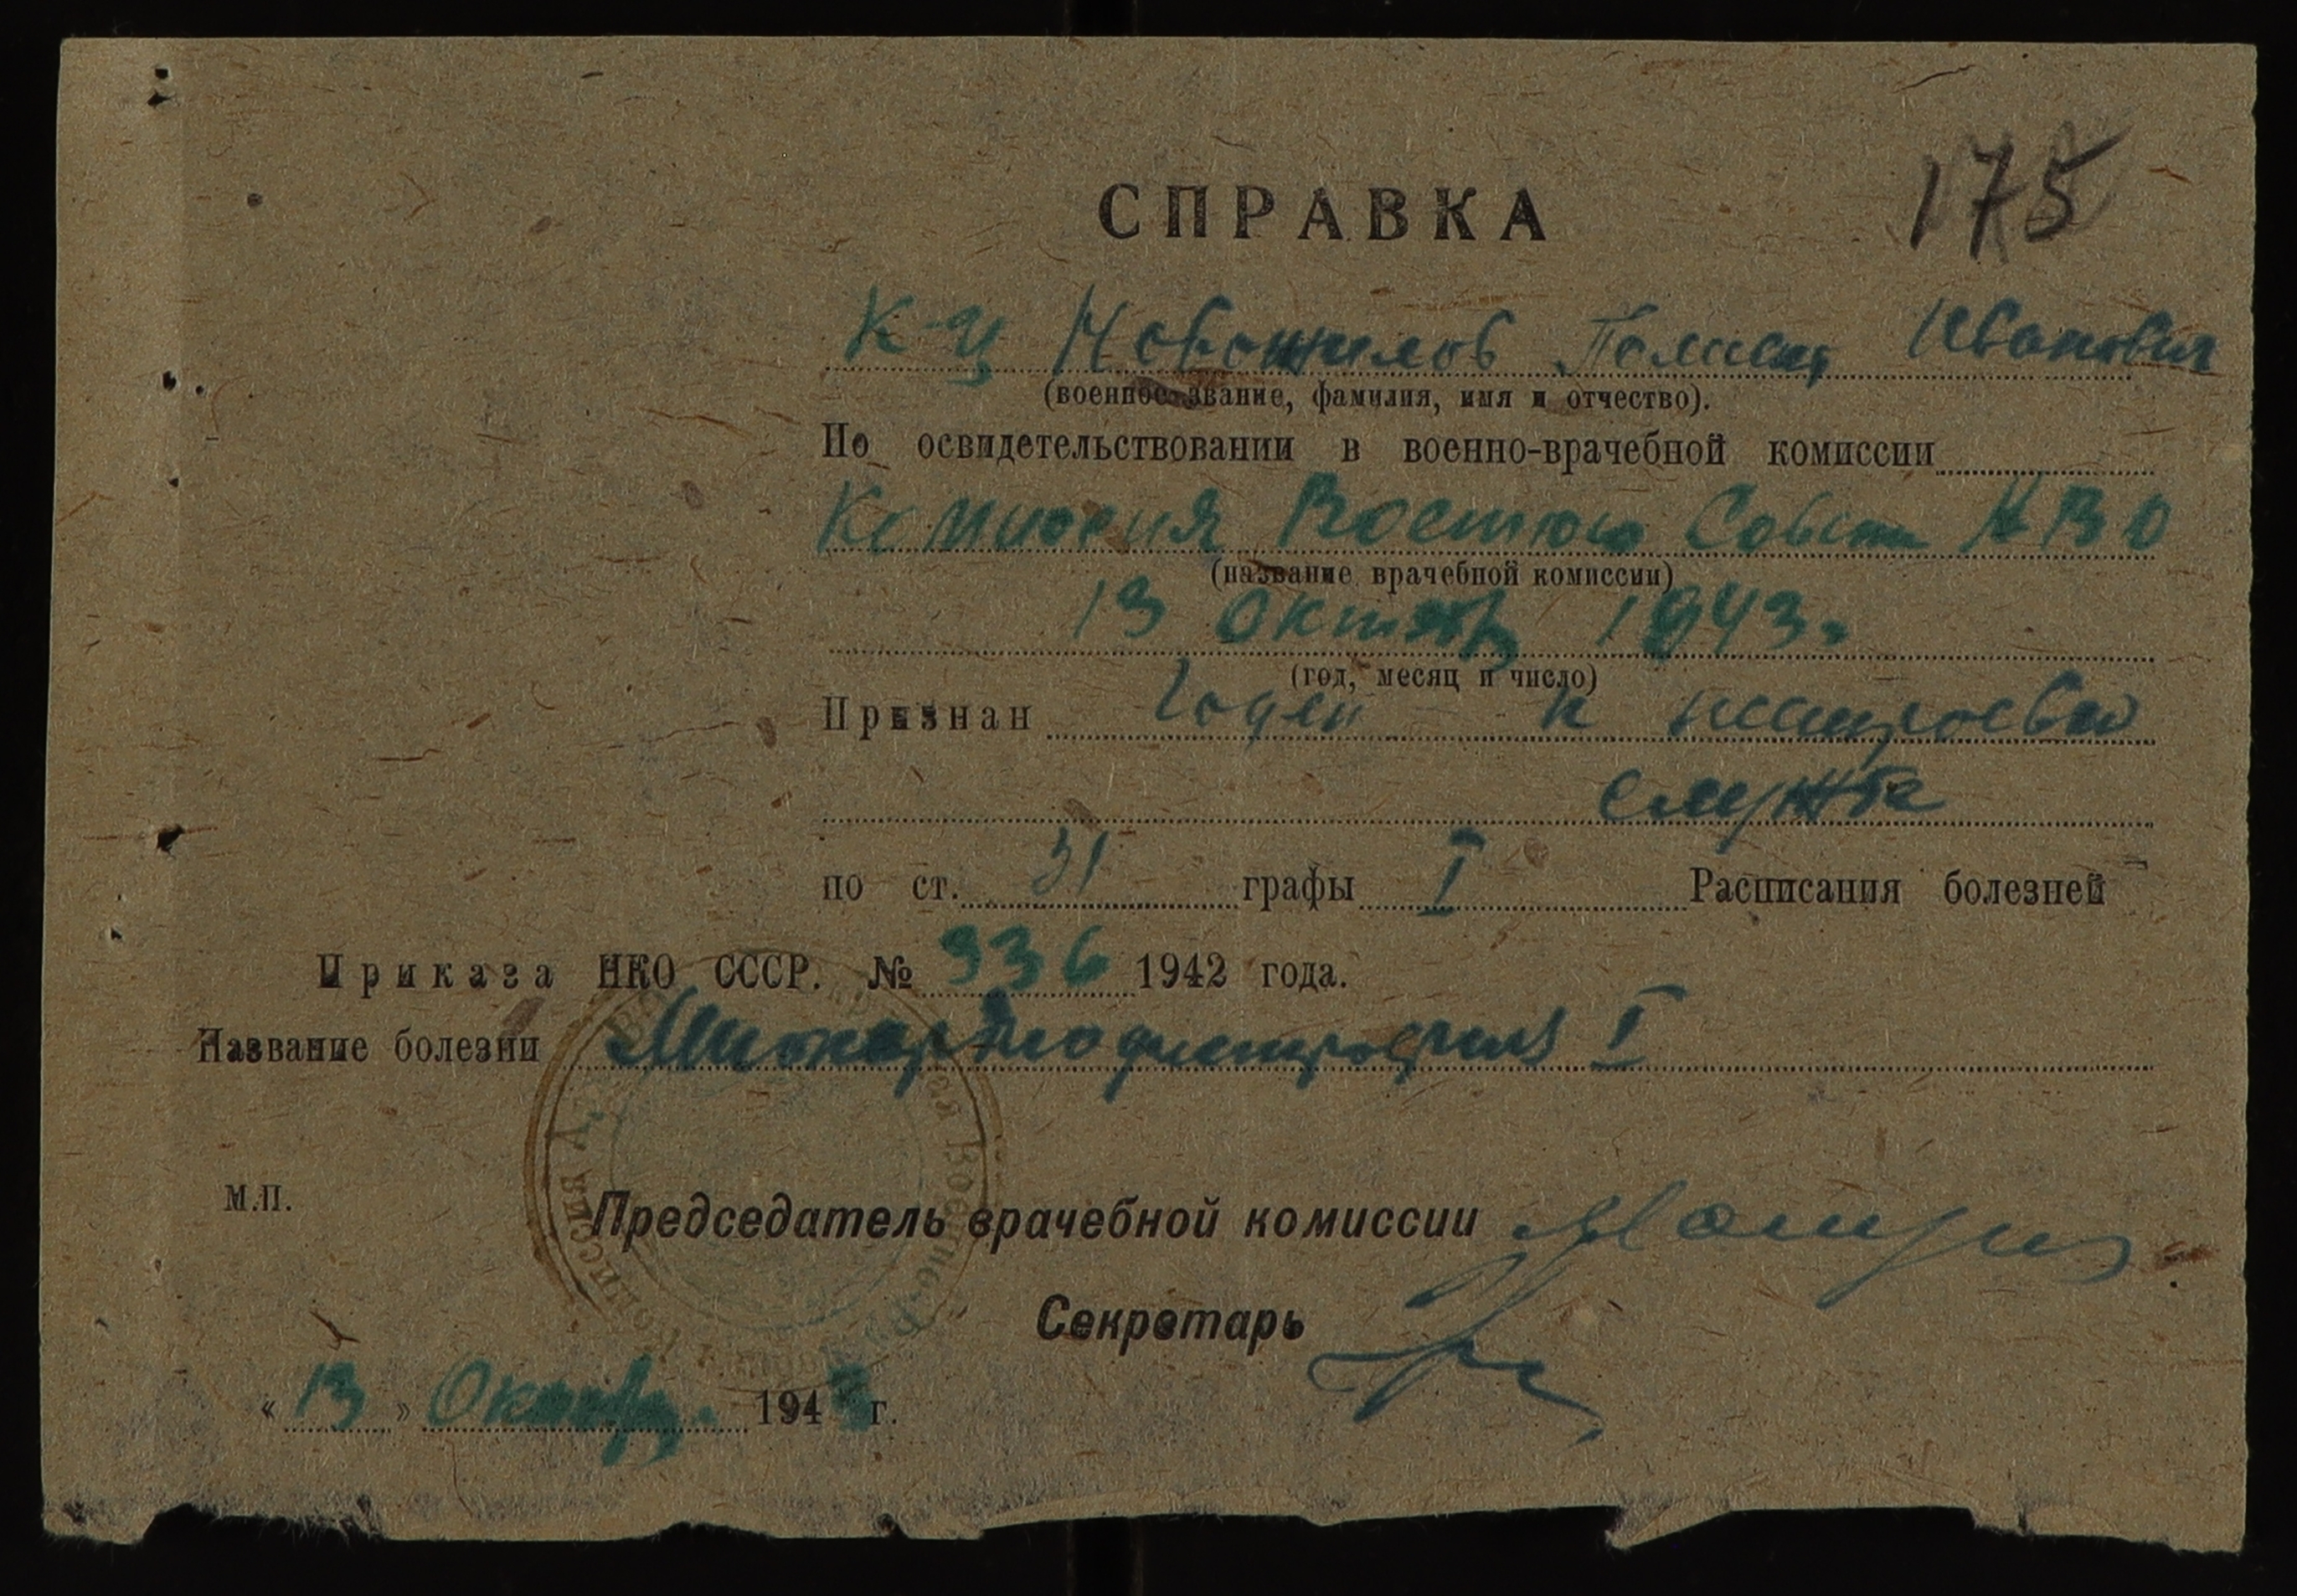 175
СПРАВКА
К-ц Новожилов Иванович
(военное звание, фамилия, имя и отчество).
По освидетельствовании в военно-врачебной комиссии
Комиссия МВО
(название врачебной комиссии)
13 Октябр 1943.
(год, месяц и число)
Признан Годен к нестроевой
службе
по ст. 31 графы I Расписания болезней
Приказа НКО СССР. № 336 1942 года.
Название болезни Миокардиодистрофия I
М.П.
Председатель врачебной комиссии
Секретарь
« 13 » Октябр. 1943 г.